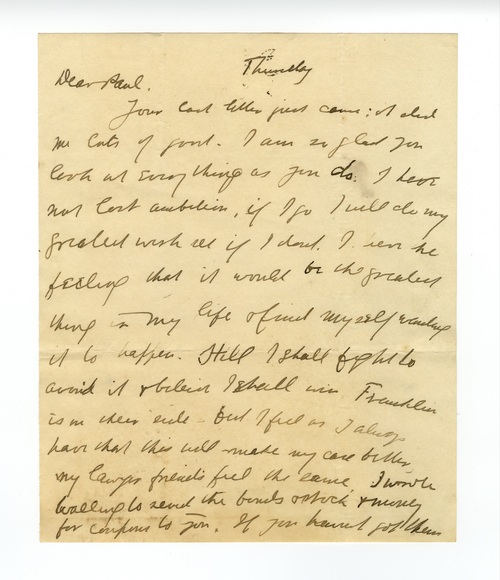 Thursday
Dear Paul.
Your last letter just came; it did
me lots of good. I am so glad you
look at everything as you do. I have
not lost ambition, if I go I will do my
greatest work see if I dont. I have the
feeling that it would be the greatest
thing in my life & find myself wanting
it to happen. Still I shall fight to
avoid it & believe I shall win Franklin
is on their side - But I feel as I always
have that this will make my case better,
my lawyer friends feel the same. I wrote
to send the bonds & stock & money
for coupons to you. If you havent got them